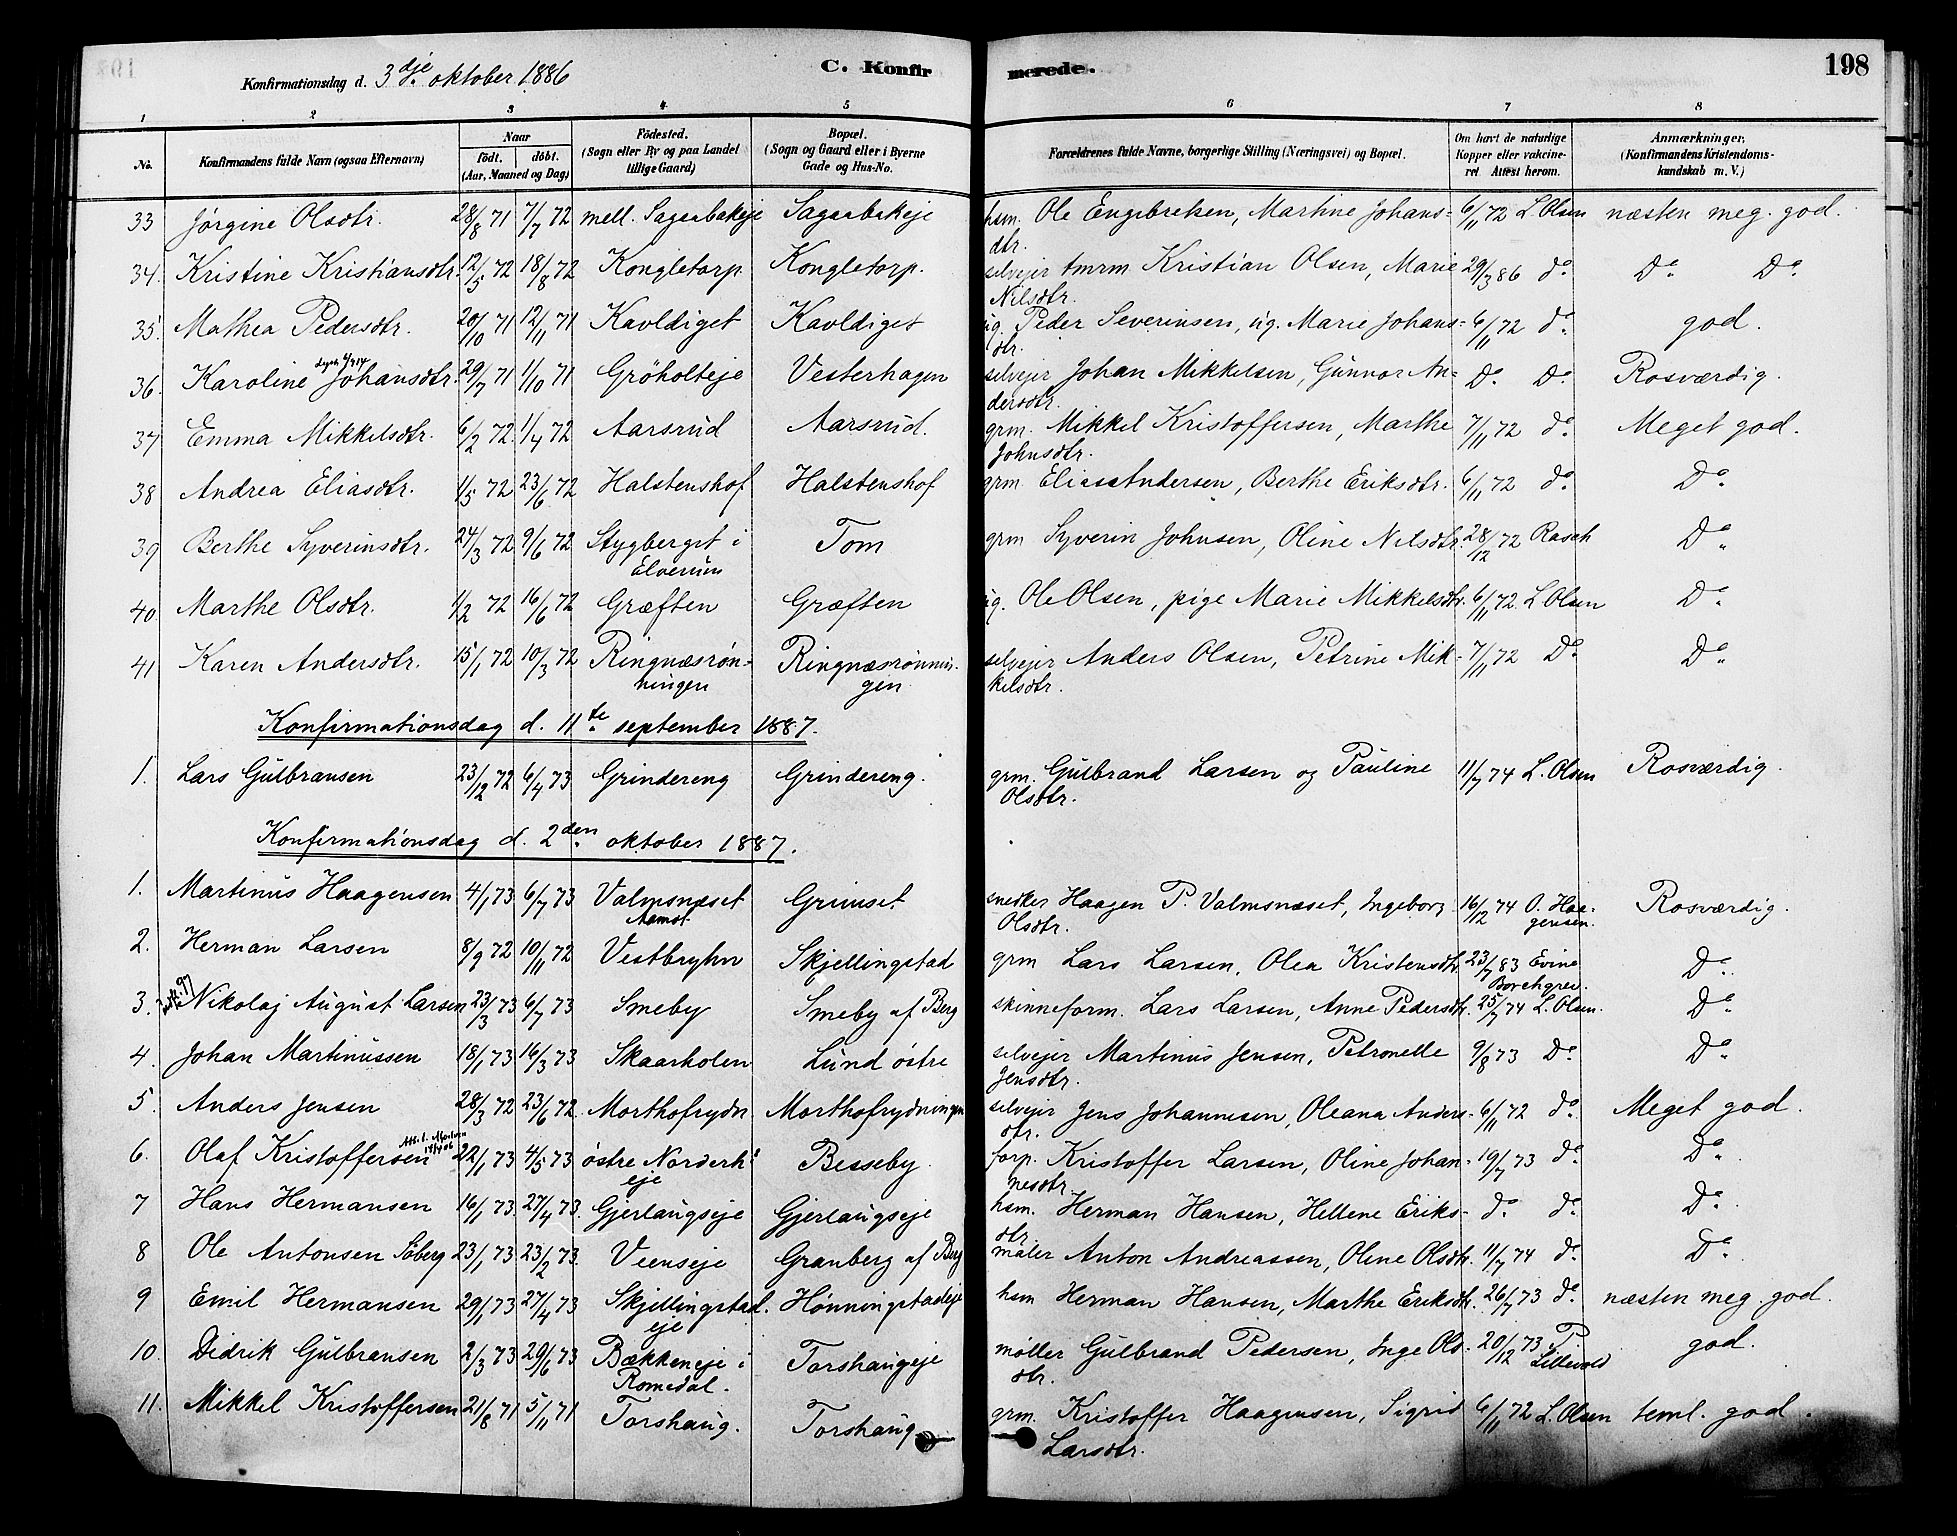 Konfirmationsdag d. 3dje oktober 1886 C. Konfirmerede. 198
1 2 3 4 5 6 7 8
No. Konfirmandens fulde Navn (ogsaa Efternavn) Naar født. døbt. (Aar, Maaned og Dag) Fødested. (Sogn eller By og paa Landet tillige Gaard) Bopæl. (Sogn og Gaard eller i Byerne Gade og Hus-No. Forældrenes fulde Navne, borgerlige Stilling (Næringsvei) og Bopæl. Om havt de naturlige Kopper eller vakcineret. Attest herom. Anmærkninger. (Konfirmandens Kristendomskundskab m. V.)
33 Jørgine Olsdtr. 28/8 71 7/7 72 mell. Sagaabakeje Sagaabakeje hsm. Ole Engebretsen, Martine Johans- 6/11 72 L Olsen næsten meg. god.
dtr.
34. Kristine Kristiansdtr. 12/5 72 18/8 72 Kongletorp Kongletorp. selvejer tmrm Kristian Olsen, Marie 29/7 86 do. Do. Do.
Nilsdtr.
35. Mathea Pedersdtr. 20/10 71 12/11 71 Kavldiget Kavldiget ug. Peder Severinsen, ug. Marie Johans- 6/11 72 do. god.
dtr.
36. Karoline Johansdtr. 29/7 71 1/10 71 Grøholteje Vesterhagen selvejer Johan Mikkelsen, Gunnor An- Do. Do. Rosværdig.
dersdtr.
37 Emma Mikkelsdtr. 6/2 72. 1/4 72 Aarsrud Aarsrud. grm. Mikkel Kristoffersen, Marthe 7/11 72 do. Meget god.
Johnsdtr.
38 Andrea Eliasdtr. 1/5 72 23/6 72 Halstenshof Halstenshof grm. Elias Andersen, Berthe Eriksdtr. 6/11 72 do. Do.
39 Berthe Syverinsdtr. 24/3 72 9/6 72 Stygberget i Tom grm Syverin Johnsen, Oline Nilsdtr. 28/12 72 Rasch Do.
Elverum
40. Marthe Olsdtr. 1/2 72 16/6 72 Græften Græften ug. Ole Olsen, pige Marie Mikkelsdtr. 6/11 72. L Olsen Do.
41 Karen Andersdtr. 15/1 72 10/3 72 Ringnæsrøn- Ringnæsrønnin- selvejer Anders Olsen, Petrine Mik- 7/11 72 Do. Do.
ningen gen kelsdtr.
Konfirmationsdag d. 11te september 1887.
1. Lars Gulbransen 23/12 72 6/4 73 Grindereng Grindereng. grm. Gulbrand Larsen og Pauline 11/7 74 L. Olsen Rosværdig.
Olsdtr.
Konfirmationsdag d. 2den oktober 1887.
1. Martinus Haagensen 4/1 73 6/7 73 Valmsnæset Grimset snedker Haagen P. Valmsnæset, Ingeborg 16/12 74 O. Haa- Rosværdig.
Aamot Olsdtr. gensen.
2. Herman Larsen 8/9 72 10/11 72 Vestbryhn Skjellingstad grm Lars Larsen, Olea Kristensdtr 23/7 83 Evine Do.
Borchgrev.
3. Nikolaj August Larsen 23/3 73 6/7 73 Smeby Smeby af Berg skinneform. Lars Larsen, Anne Pedersdtr. 25/7 74 L. Olsen. Do.
4. Johan Martinussen 18/1 73 16/3 73 Skaarholen Lund østre selvejer Martinus Jensen, Petronelle 9/8 73 Do. Do.
Jensdtr.
5. Anders Jensen 28/3 72 23/6 72. Morthofrydn Morthofrydningen selvejer Jens Johannesen, Oleana Anders- 6/11 72 do. Meget god.
dtr.
6. Olaf Kristoffersen 22/1 73 4/5 73 østre Norderh. Besseby. forp. Kristoffer Larsen, Oline Johan- 19/7 73 do. Do.
eje nesdtr.
7 Hans Hermansen 16/1 73. 27/4 73. Gjerlaugseje Gjerlaugseje hsm. Herman Hansen, Hellene Eriks- do. do. Do.
dtr.
8 Ole Antonsen Søberg 23/1 73. 23/2 73. Veenseje Granberg af Berg maler Anton Andreassen, Oline Olsdtr. 11/7 74 do. Do.
9 Emil Hermansen 29/1 73 27/4 73 Skjellingstad. Hønningstadeje hsm Herman Hansen, Marthe Eriksdtr. 26/7 73 do. næsten meg. god.
eje
10. Didrik Gulbransen 2/3 73 29/6 73 Bækkeneje i Torshaugeje møller Gulbrand Pedersen, Inge Ols- 20/12 73 P god.
Romedal. dtr. Lillevold
11. Mikkel Kristoffersen 21/8 71 5/11 71 Torshaug. Torshaug grm. Kristoffer Haagensen, Sigrid 6/11 72 L. Olsen teml. god.
Larsdtr.